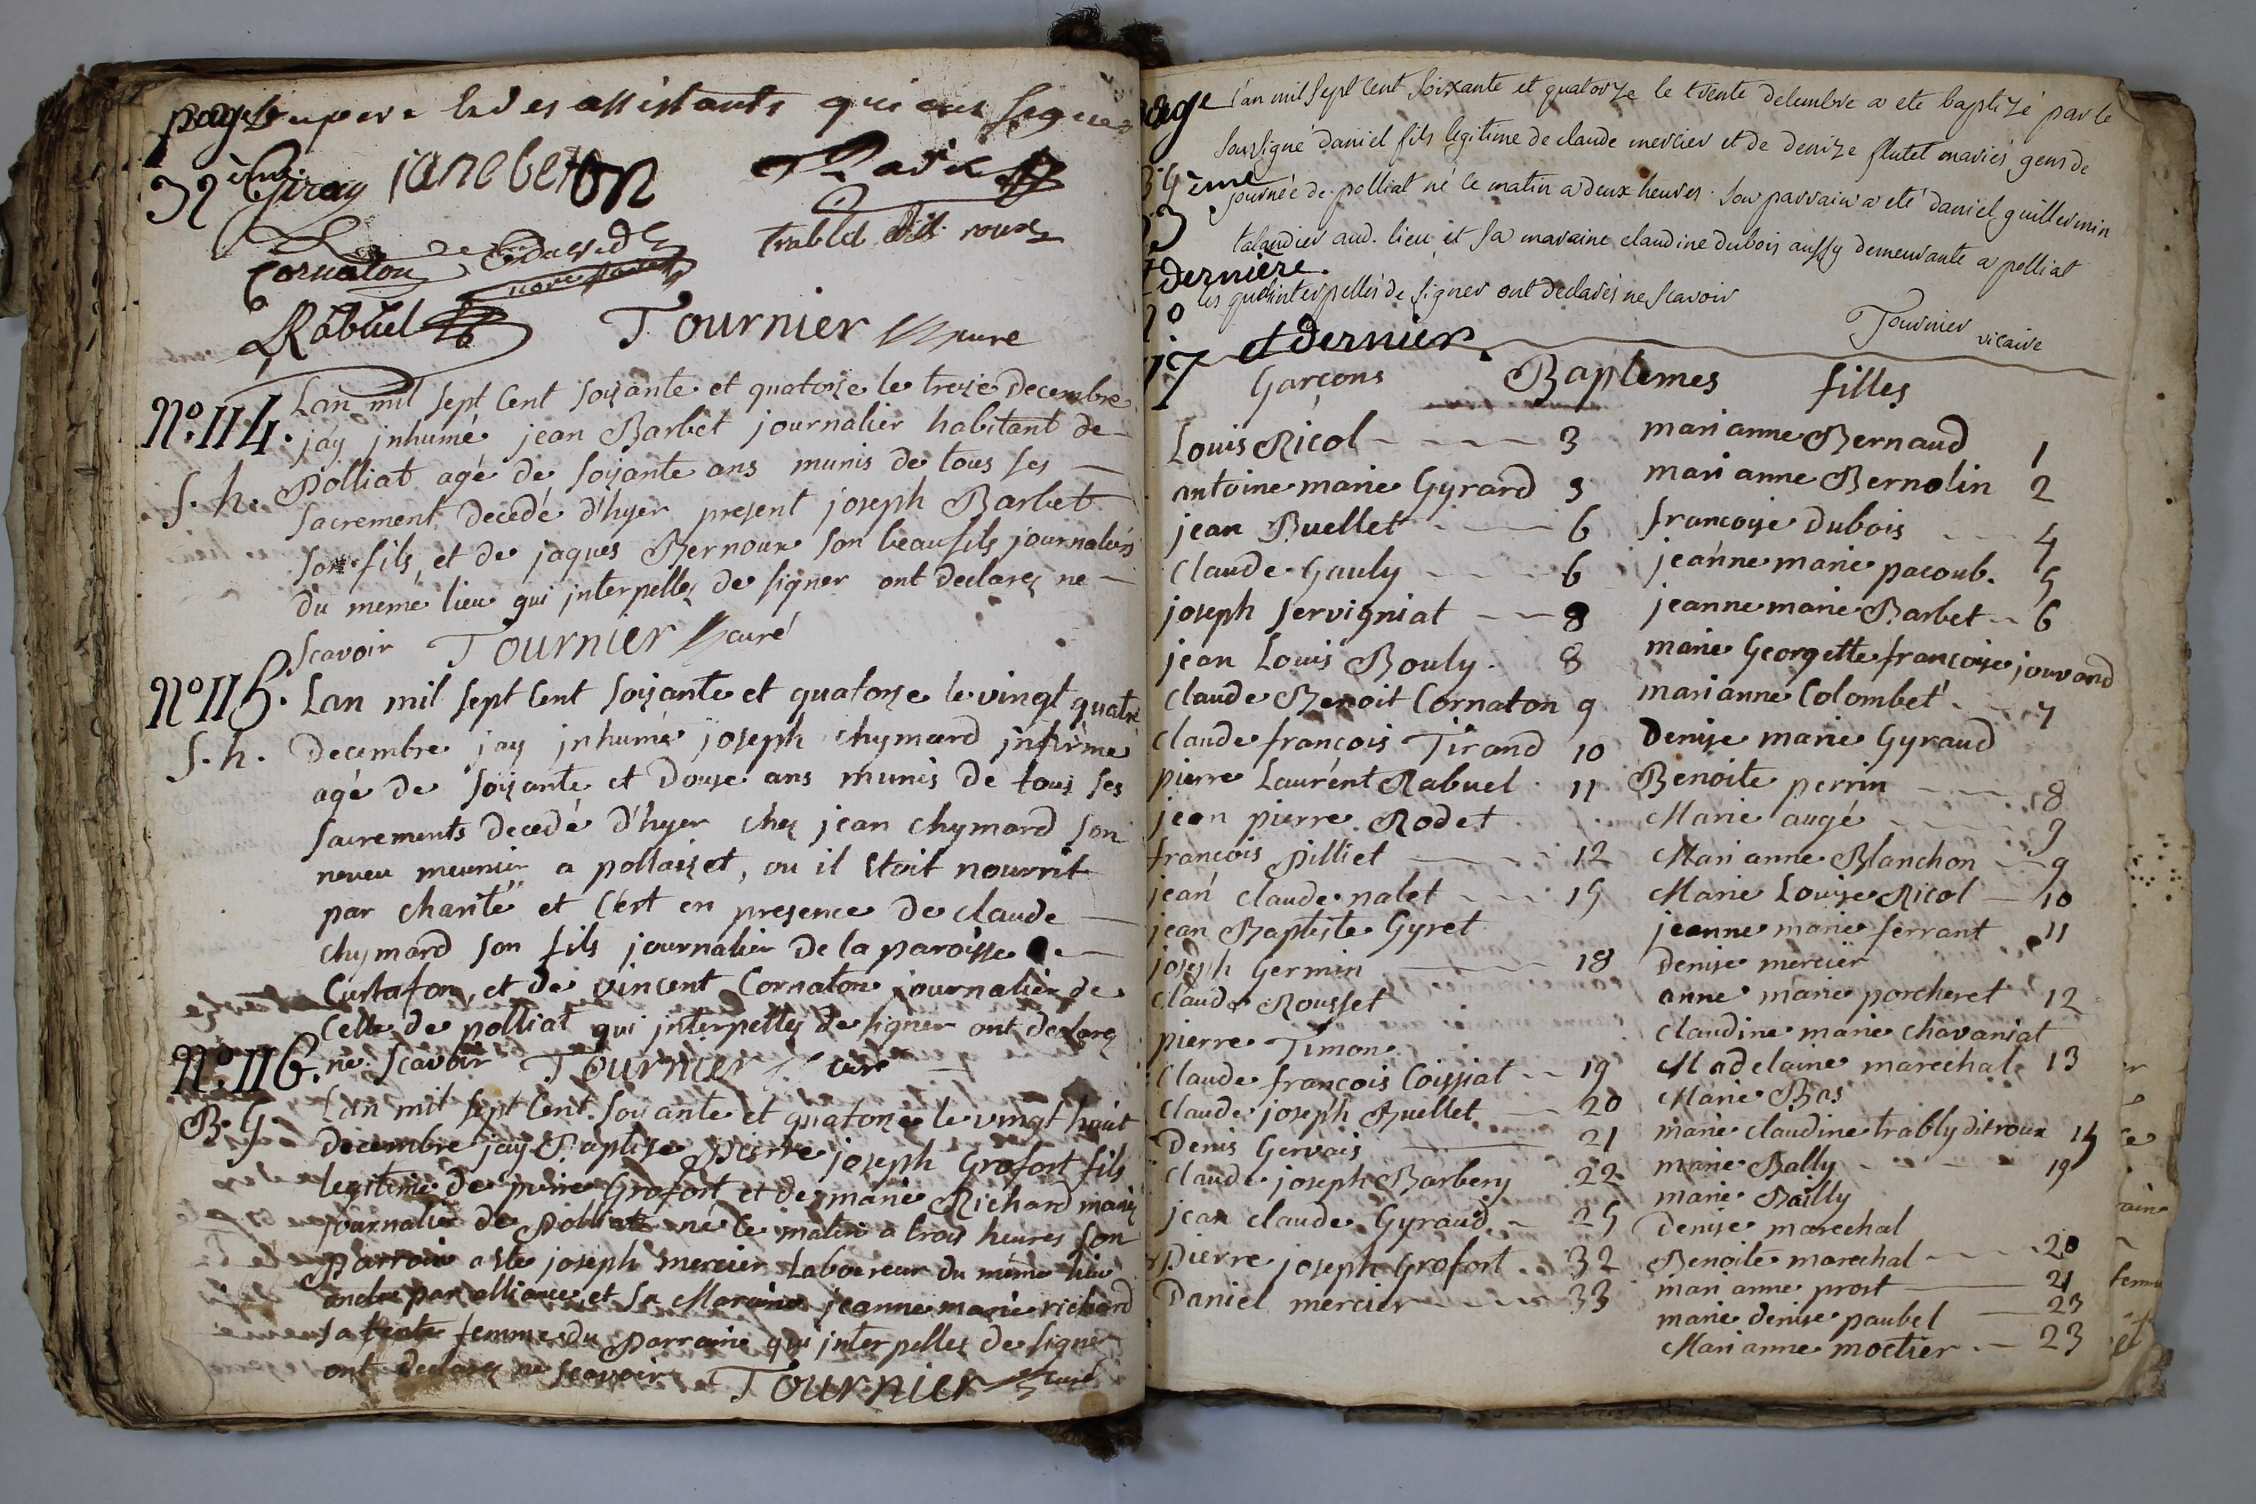 page supere et des assistants qui ont signes
32 ème
Giray janebeton Ravix
Cornaton trablit dit roux
Rabuel Tournier curé
N° 114. Lan mil sept cent soixante et quatorze le treize decembre
jay jnhumé jean Barbet journalier habitant de
S. h. Polliat agé de soixante ans munis de tous ses
sacrement decedé d'hyer present joseph Barbet
son fils, et de jaques Bernoux son beaufils journaliers
du meme lieu qui jnterpelles de signer ont declares ne
scavoir Tournier curé
N° 115. Lan mil sept cent soixante et quatorze le vingt quatre
S. h. decembre jay jnhumé joseph chymard jnfirme
agé de soixante et douze ans munis de tous ses
sacrements decedé d'hyer chez jean chymard son
neveu meunier a pollaizet, ou il etoit nourrit
par charité et c'est en presence de claude
chymard son fils journalier de la paroisse de
Curtafon, et de vincent Cornaton journalier de
celle de polliat qui jnterpelles de signer ont declares
ne scavoir Tournier curé
N° 116. Lan mil sept cent soixante et quatorze le vingt huit
B. G decembre jay Baptize pierre joseph Grofort fils
legitime de pierre Grofort et de marie Richard maries
journalier de Polliat né le matin a trois heures son
parrain a ete joseph mercier Laboureur du même lieu
oncle par alliance et sa Maraine jeanne marie richard
sa tante femme du parraine qui jnterpelles de signer
ont declares ne scavoir Tournier curé
L'an mil sept cent soixante et quatorze le trente decembre a eté baptizé par le
soussigné daniel fils legitime de claude mercier et de denize flutet mariés gens de
journée de polliat né le matin a deux heures. son parrain a eté daniel guillermin
talandier aud. lieu et sa maraine claudine dubois aussy demeurante a polliat
les quels interpellés de signer ont declarés ne scavoir
Tournier vicaire
page
34ème
33
et dernière.
20
17 et dernier.
Garçons Baptemes filles
Louis Nicol 3 marianne Bernaud 1
antoine marie Gyrard 3 marianne Bernolin 2
jean Buellet 6 francoise dubois 4
Claude Gauly 6 jeanne marie pacoub. 5
joseph Servigniat 8 jeanne marie Barbet 6
jean Louis Bouly. 8 marie Georgette francoise jouvand
Claude Benoit Cornaton 9 marianne Colombet 7
Claude francois Tirand 10 Denise marie Gyraud
pierre Laurent Rabuel 11 Benoite perrin 8
jean pierre Rodet Marie augé 9
francois Pilliet 12 Marianne Blanchon 9
jean claude nalet 15 Marie Louise Nicol 10
jean Baptiste Gyret jeanne marie ferrant 11
joseph Germin 18 Denise mercier
Claude Rousset anne marie porcheret 12
pierre Timon claudine marie chavaniat
Claude francois Coissiat 19 Madelaine marechal 13
Claude joseph Buellet 20 Marie Bas
Denis Gervais 21 marie claudine trably dit roux 15
Claude joseph Barbery 22 marie Bally 19
jean claude Gyraud 25 marie Bailly
pierre joseph Grofort 32 Denise marechal
Daniel mercier 33 Benoite marechal 20
marianne prost 21
marie denise paubel 23
Marianne moctier 23